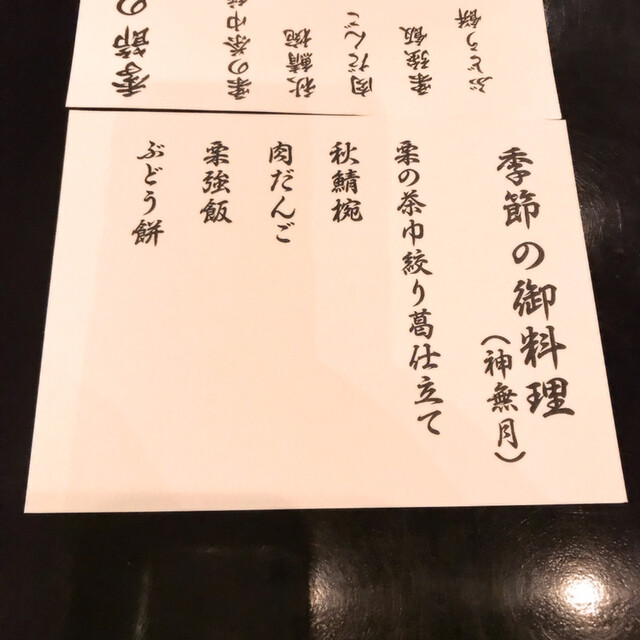 季節の御料理
(神無月)
栗の茶巾絞り葛仕立て
秋鯖椀
肉だんご
栗強飯
ぶどう餅
季節の
栗の茶巾
秋鯖椀
肉だんご
栗強飯
ぶどう餅